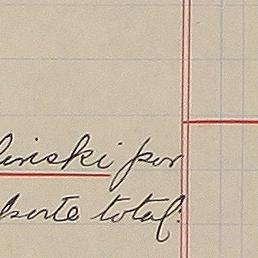 linski por
porte total.